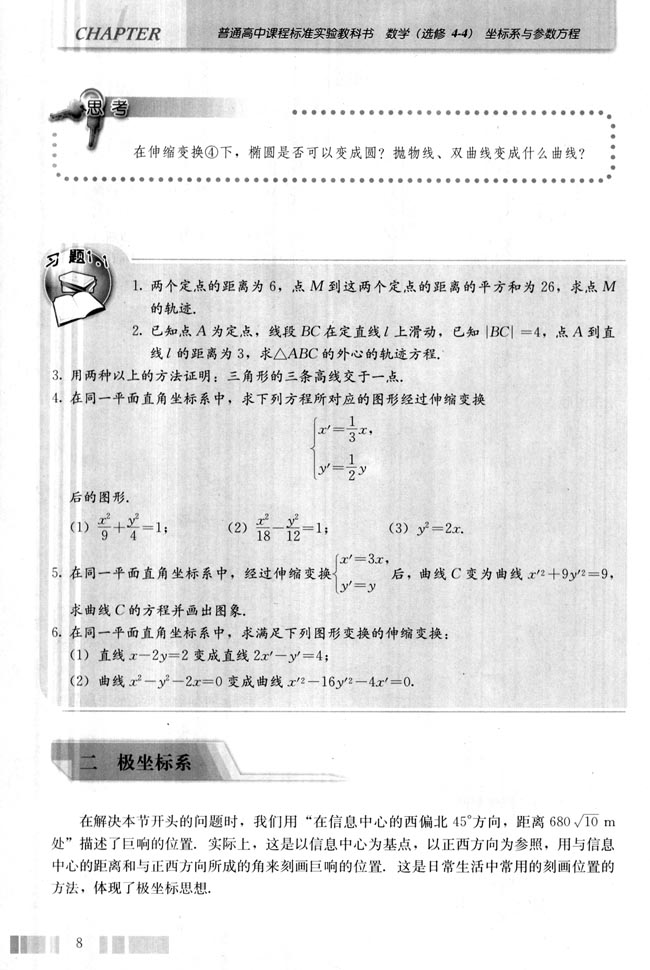 CHAPTER
普通高中课程标准实验教科书 数学(选修 4-4) 坐标系与参数方程
思考
在伸缩变换④下,椭圆是否可以变成圆?抛物线、双曲线变成什么曲线?
习题1.1
1. 两个定点的距离为 6,点 M 到这两个定点的距离的平方和为 26,求点 M
的轨迹.
2. 已知点 A 为定点,线段 BC 在定直线 l 上滑动,已知 |BC| =4,点 A 到直
线 l 的距离为 3,求△ABC 的外心的轨迹方程.
3. 用两种以上的方法证明:三角形的三条高线交于一点.
4. 在同一平面直角坐标系中,求下列方程所对应的图形经过伸缩变换
x′=1/3x,
y′=1/2y
后的图形.
(1) x²/9+y²/4=1; (2) x²/18−y²/12=1; (3) y²=2x.
5. 在同一平面直角坐标系中,经过伸缩变换{x′=3x, y′=y 后,曲线 C 变为曲线 x′²+9y′²=9,
求曲线 C 的方程并画出图象.
6. 在同一平面直角坐标系中,求满足下列图形变换的伸缩变换:
(1) 直线 x−2y=2 变成直线 2x′−y′=4;
(2) 曲线 x²−y²−2x=0 变成曲线 x′²−16y′²−4x′=0.
二 极坐标系
在解决本节开头的问题时,我们用“在信息中心的西偏北 45°方向,距离 680√10 m
处”描述了巨响的位置. 实际上,这是以信息中心为基点,以正西方向为参照,用与信息
中心的距离和与正西方向所成的角来刻画巨响的位置. 这是日常生活中常用的刻画位置的
方法,体现了极坐标思想.
8